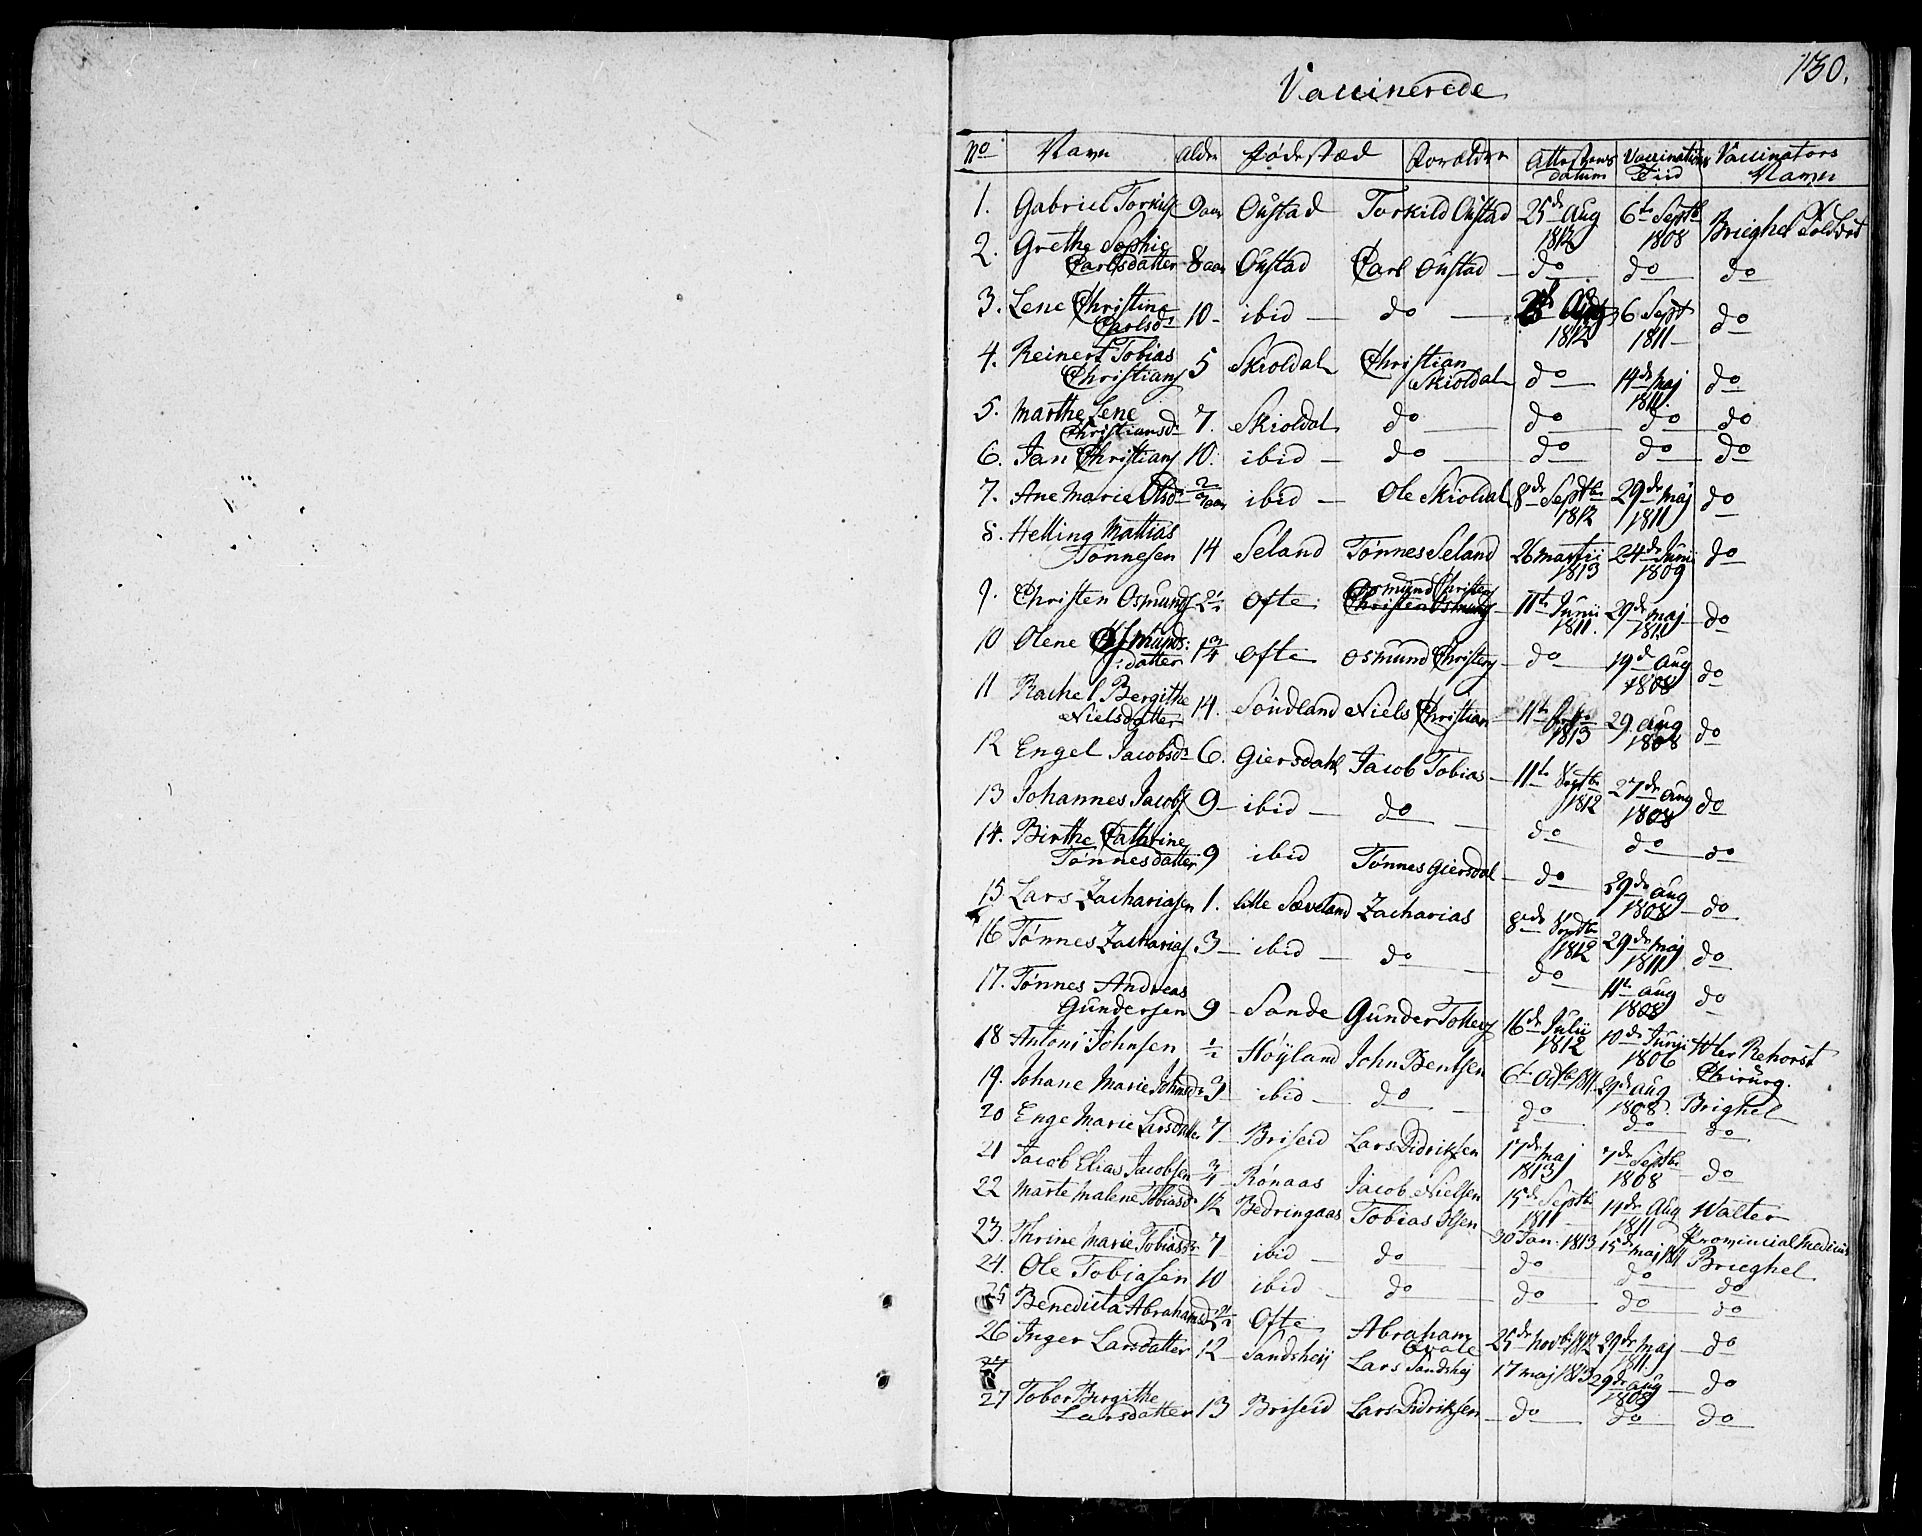 130.
Vaccinerede
No Navn Alder Fødestæd Forældre Attestens datum Vaccinations Tiid Vaccinators Navn
1. Gabriel Torkils 9 aar Oustad Torkild Oustad 25de Aug 1812 6te Septb 1808 Brieghel
2. Grethe Sophie Carlsdatter 8 aar Oustad Carl Oustad do do do
3. Lene Christine Carlsdr 10 ibid do 1812 6 Sept 1811 do
4. Reinert Tobias Christians 5 Skioldal Christian Skioldal do 14de Maj 1811 do
5. Marthe Lene Christiansdr 7. Skioldal do do do do
6. Jan Christians 10. ibid do do do do
7. Ane Marie Olsdr ibid Ole Skioldal 8de Septbr 1812 29de Maj 1811 do
8. Helling Mattias Tønnesen 14 Seland Tønnes Seland 26 Martii 1813 24de Junii 1809 do
9. Christen Osmunds 2½ Ofte Osmund Christens 11te Junii 1811. 29de Maj 1811 do
10 Olene Osmunds:datter 1¾ Ofte Osmund Christens do 19d Aug 1808 do
11 Rachel Bergithe Nielsdatter 14. Søndland Niels Christian 11te 1813 29 Aug 1808 do
12 Engel Jacobsdr 6. Giersdahl Jacob Tobias 11te Septbr 1812 27de Aug 1808 do
13 Johannes Jacobs 9 ibid do do do do
14. Birthe Cathrine Tønnesdatter 9 ibid Tønnes Giersdal do 29de Aug 1808 do
15 Lars Zachariasen 1. Lille Sæveland Zacharias 8de Septbr 1812 29de Maj 1811 do
16 Tønnes Zacharias 3 ibid do do 11te Aug 1808 do
17. Tønnes Andreas Gundersen 9 Sande Gunder Tollevs 16de Julii 1812 10de Junii 1806 Rehorst Chirurg.
18 Antoni Johnsen ½ Høyland John Bentsen 6te Octb 1811. 29de Aug 1808 Brighel
19. Johane Marie Johnsdr 3 ibid do do do do
20 Enge Marie Larsdatter 7 Briseid Lars Didriksen 17de Maj 1813 7de Septbr 1808 do
21 Jacob Elias Jacobsen ¾ Rønaas Jacob Nielsen 15de Septb 1811 14de Aug 1811 Walter Provincialmedicus
22 Marte Malene Tobiasdr 12 Bedringaas Tobias Olsen 30 Jan: 1813 15de Maj 1811 Brieghel
23. Thrine Marie Tobiasdr 7 ibid do do do do
24. Ole Tobiasen 10 ibid do do do do
25 Benedicta Abrahamsdr 2½ Ofte Abraham Qvale 25de Novbr 1812 29de Maj 1811. do
26 Inger Larsdatter 12 Sandshøij Lars Sandshøj 17 Maj 1813 29de Aug 1808 do
27 Tobor Birgithe Larsdatter 13 Briseid Lars Didriksen do do do